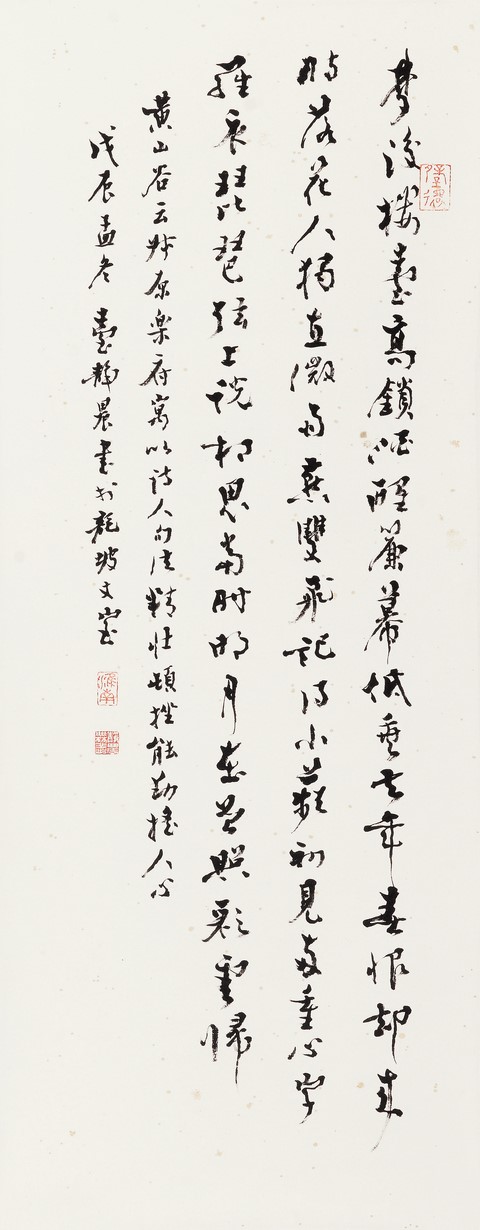 夢後樓臺高鎖酒醒簾幕低垂去年春恨却來
時落花人獨立微雨燕雙飛記得小蘋初見兩重心字
羅衣琵琶弦上說相思當時明月在曾照彩雲歸
黃山谷云叔原樂府寓以詩人句法精壯頓挫能動搖人心
戊辰孟冬臺靜農書於龍坡丈室